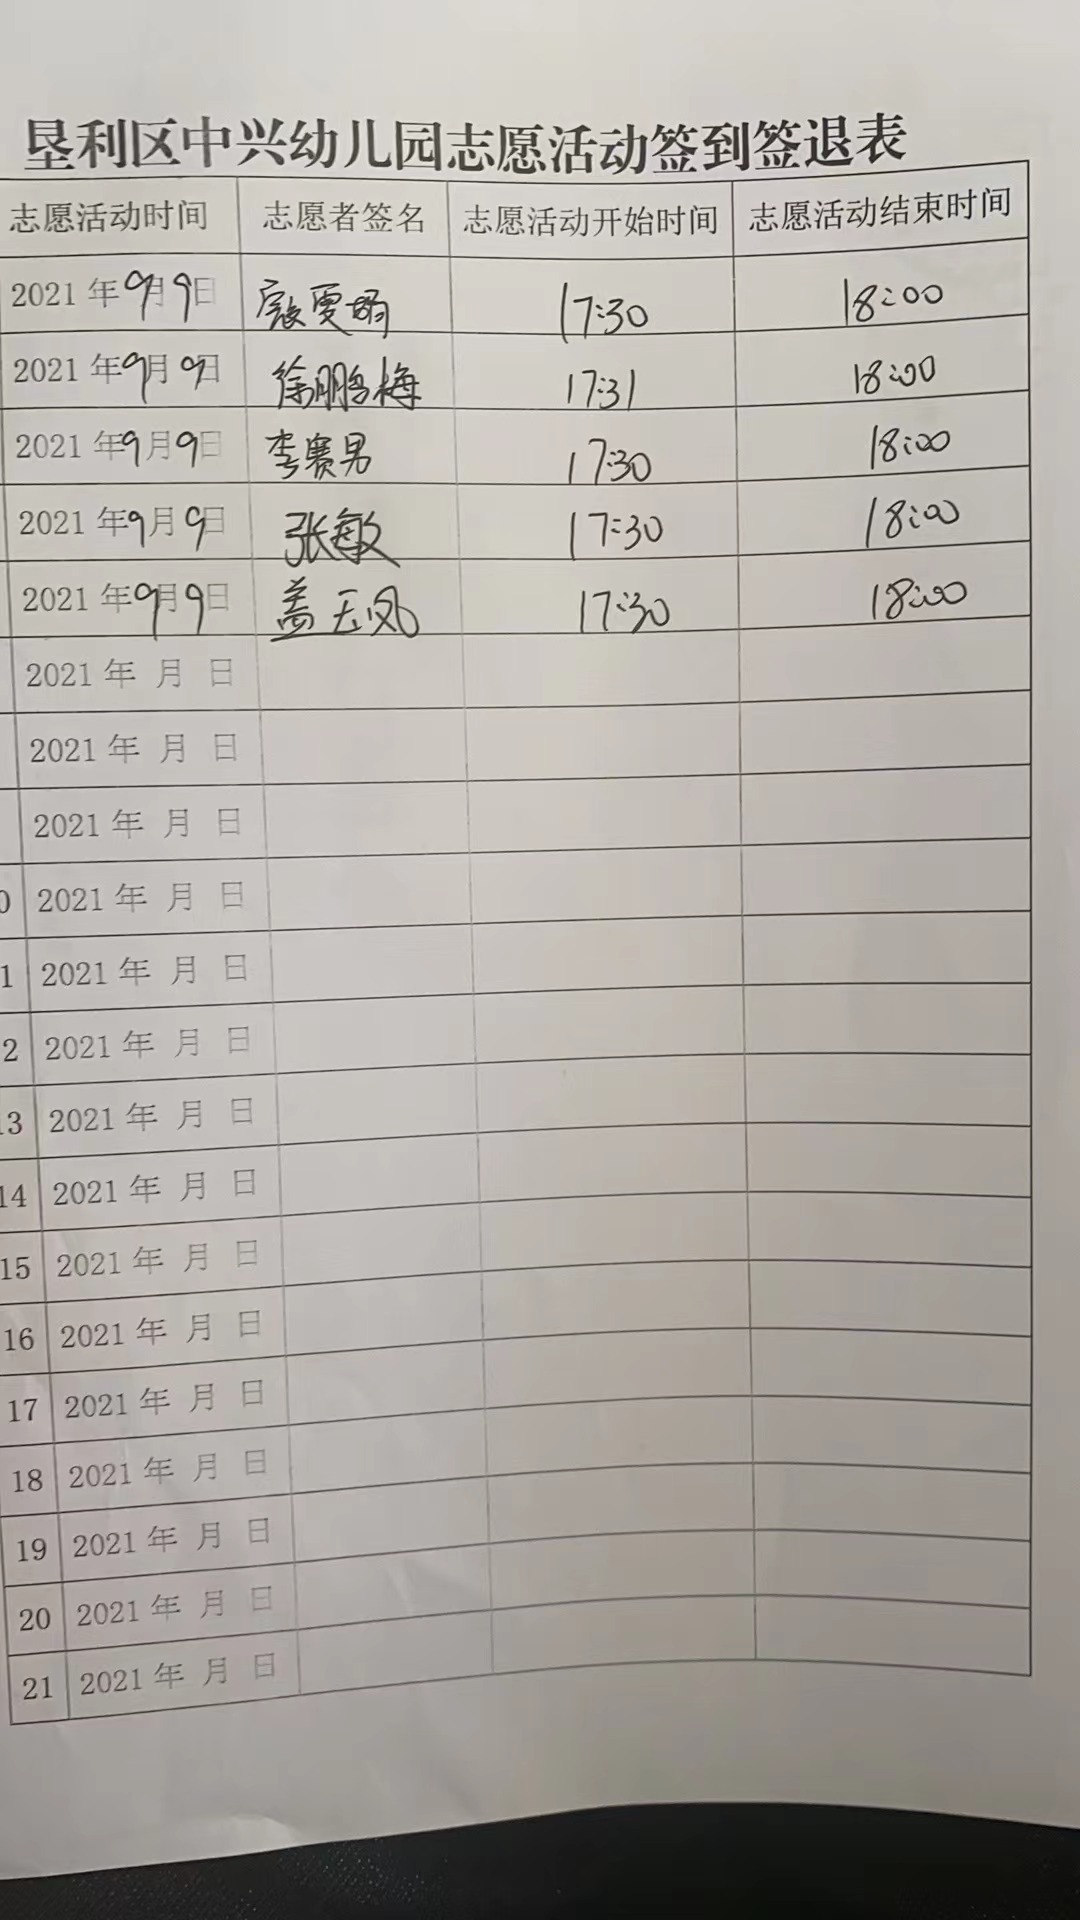 垦利区中兴幼儿园志愿活动签到签退表
志愿活动时间 志愿者签名 志愿活动开始时间 志愿活动结束时间
2021 年 9月 9日 17:30 18:00
2021 年 9月 9日 徐鹏梅 17:31 18:00
2021 年 9月 9日 李赛男 17:30 18:00
2021 年 9月 9日 张敏 17:30 18:00
2021 年 9月 9日 盖玉凤 17:30 18:00
2021 年 月 日
2021 年 月 日
2021 年 月 日
0 2021 年 月 日
1 2021 年 月 日
2 2021 年 月 日
13 2021 年 月 日
14 2021 年 月 日
15 2021 年 月 日
16 2021 年 月 日
17 2021 年 月 日
18 2021 年 月 日
19 2021 年 月 日
20 2021 年 月 日
21 2021 年 月 日